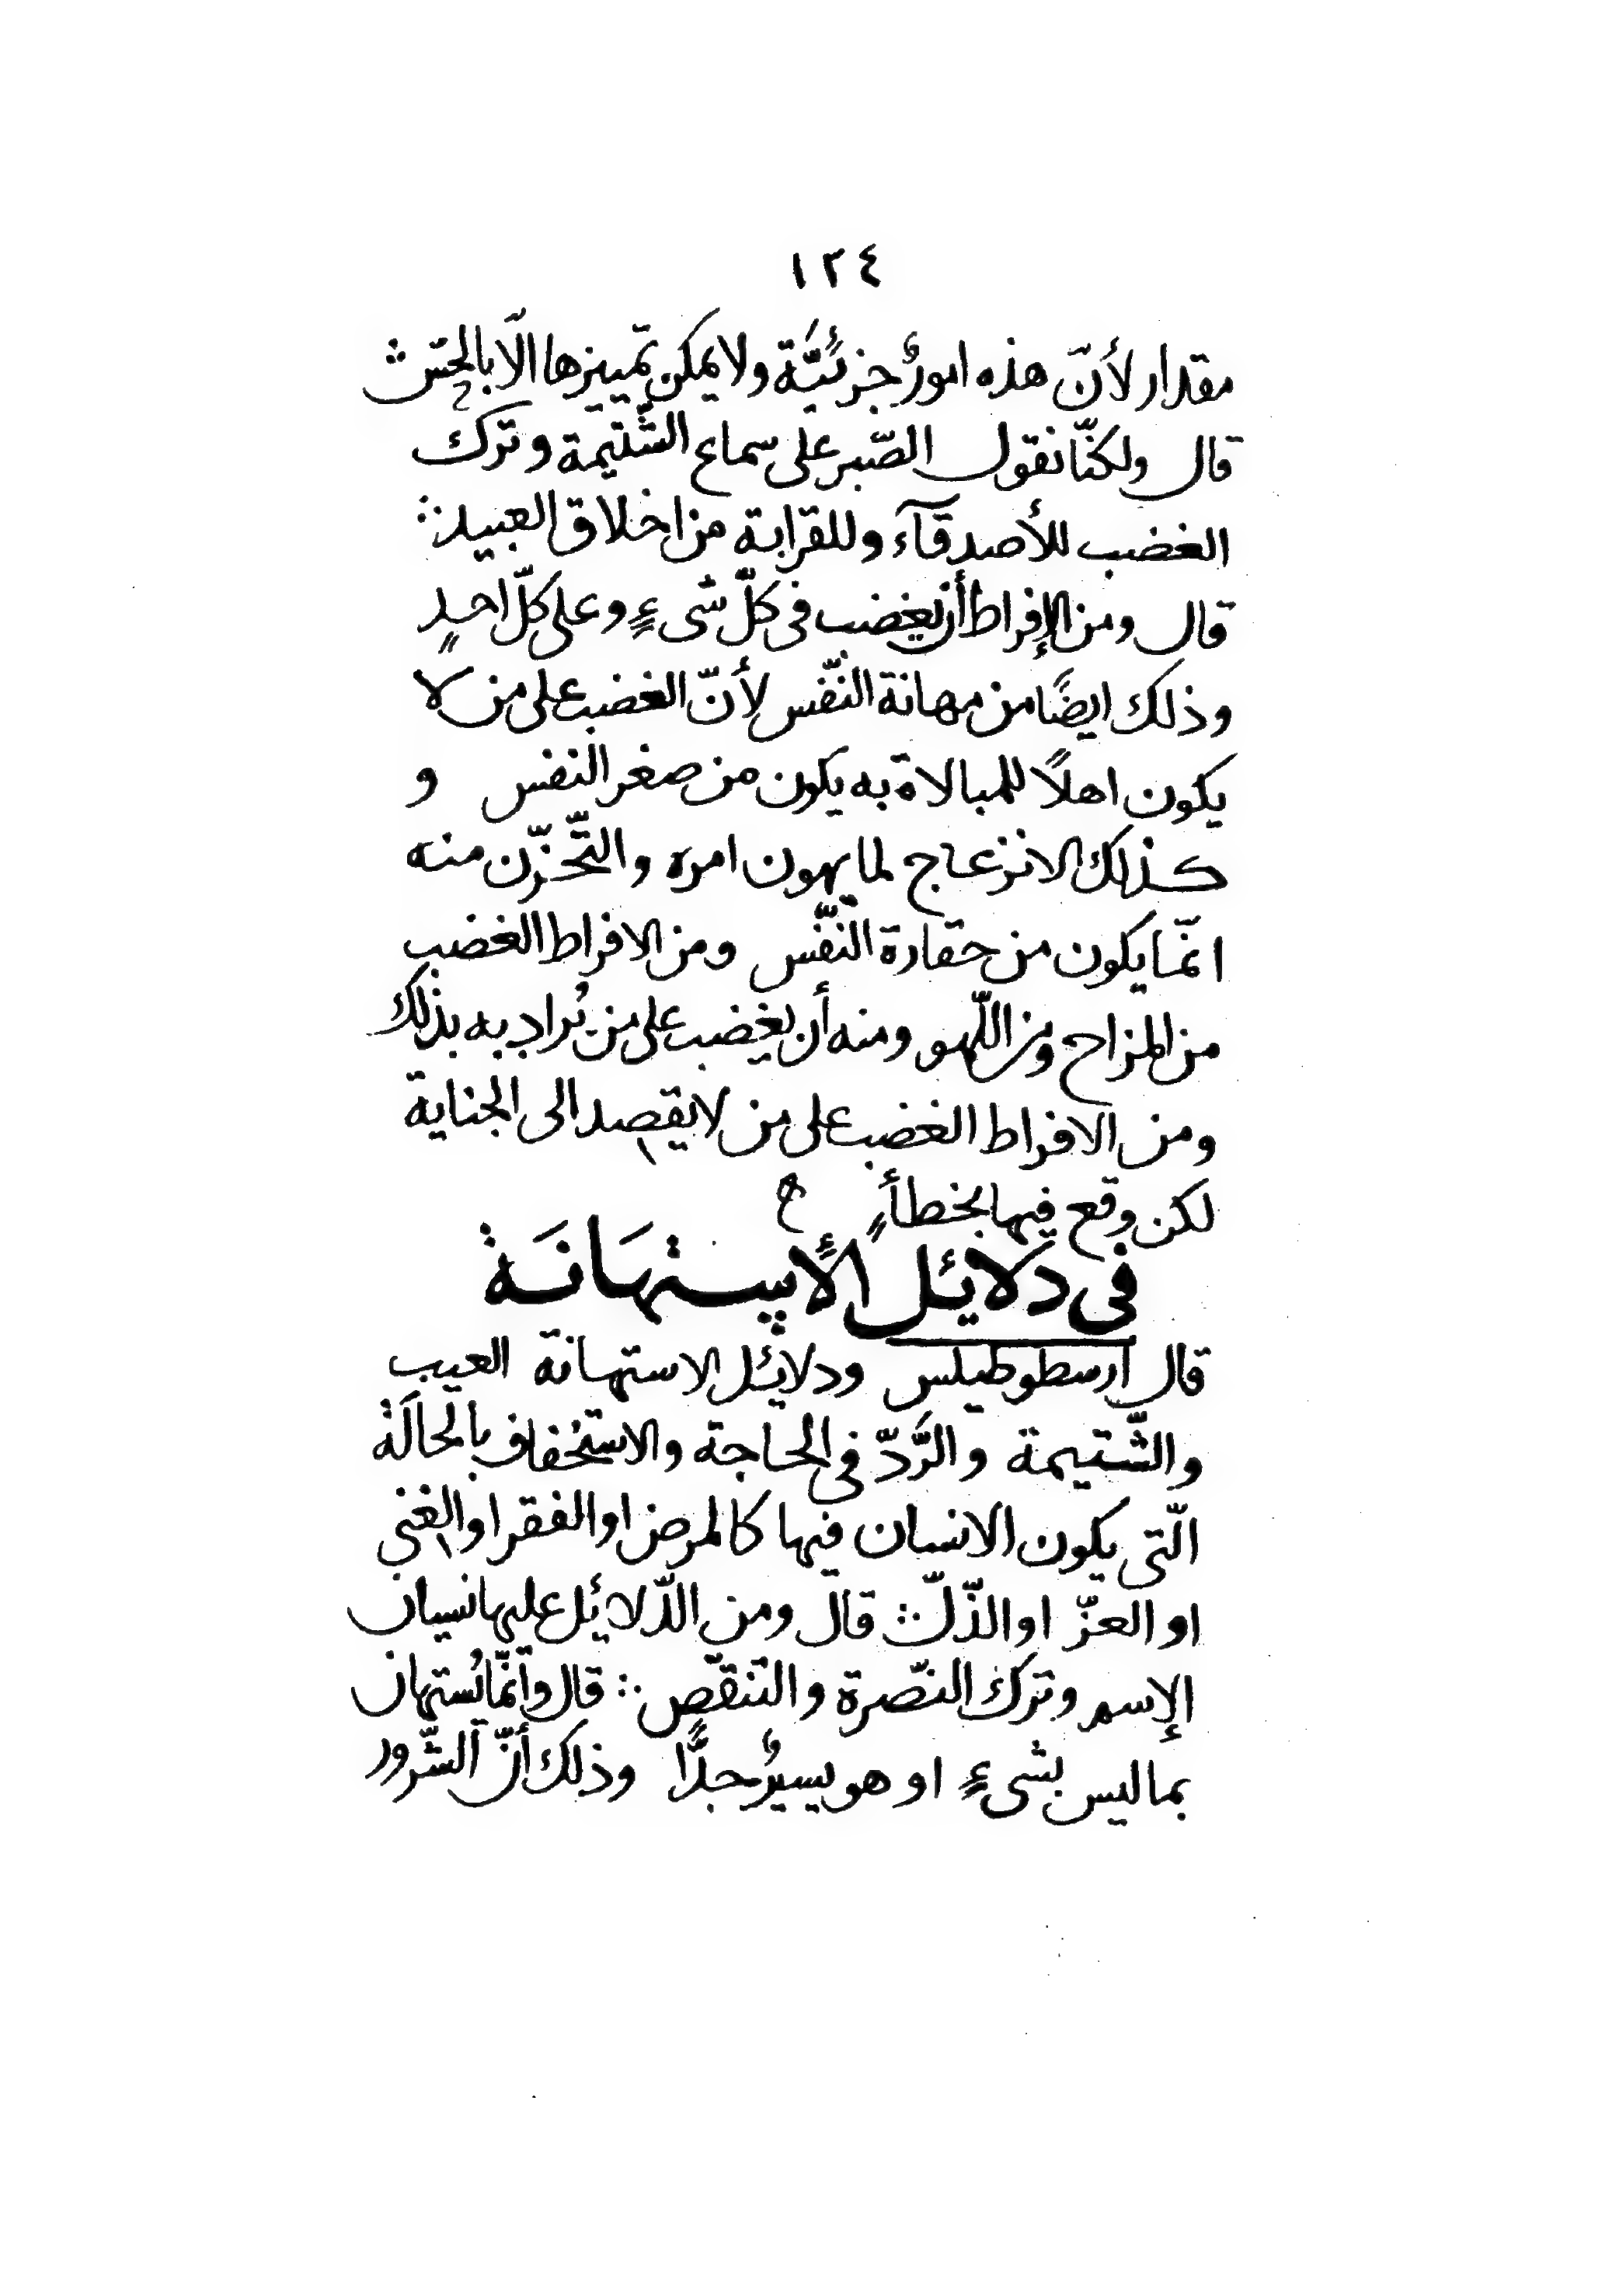 ١٣٤
مقدار لأنّ هذه امورٌ جزئيّة ولا يمكن تمييزها الّا بالحسّ ⁖
قال ولكنّا نقول الصّبر على سماع الشّتيمة وترك
الغضب للأصدقآء وللقرابة من اخلاق العبيد ⁖
قال ومن الإفراط أن يغضب فى كلّ شىءٍ وعلى كلّ احدٍ
وذلك ايضًا من مهانة النّفس لأنّ الغضب على من لا
يكون اهلًا للمبالاة به يكون من صغر النفس و
كذلك الانزعاج لما يهون امره والتّحزّن منه
انّما يكون من حقارة النّفس ومن الافراط الغضب
من المزاح ومن اللّهو ومنه أن يغضب على من يُراد به بذلك
ومن الافراط الغضب على من لا يقصد الى الجناية
لكن وقع فيها بخطأٍ
فى دلائل الإستهَانَة
قال أرسطوطيلس ودلائل الاستهانة العيب
والشّتيمة والرَّدّ فى الحاجة والاستخفاف بالحالَة
الّتى يكون الانسان فيها كالمرض او الفقر او الغنى
او العزّ او الذّلّ ⁖ قال ومن الدّلائل عليها نسيان
الإسم وترك النّصرة والتنقّص ⁖ قال وانّما يُستهان
بما ليس بشىءٍ او هو يسيرٌ جدًّا وذلك أنّ الشّرور